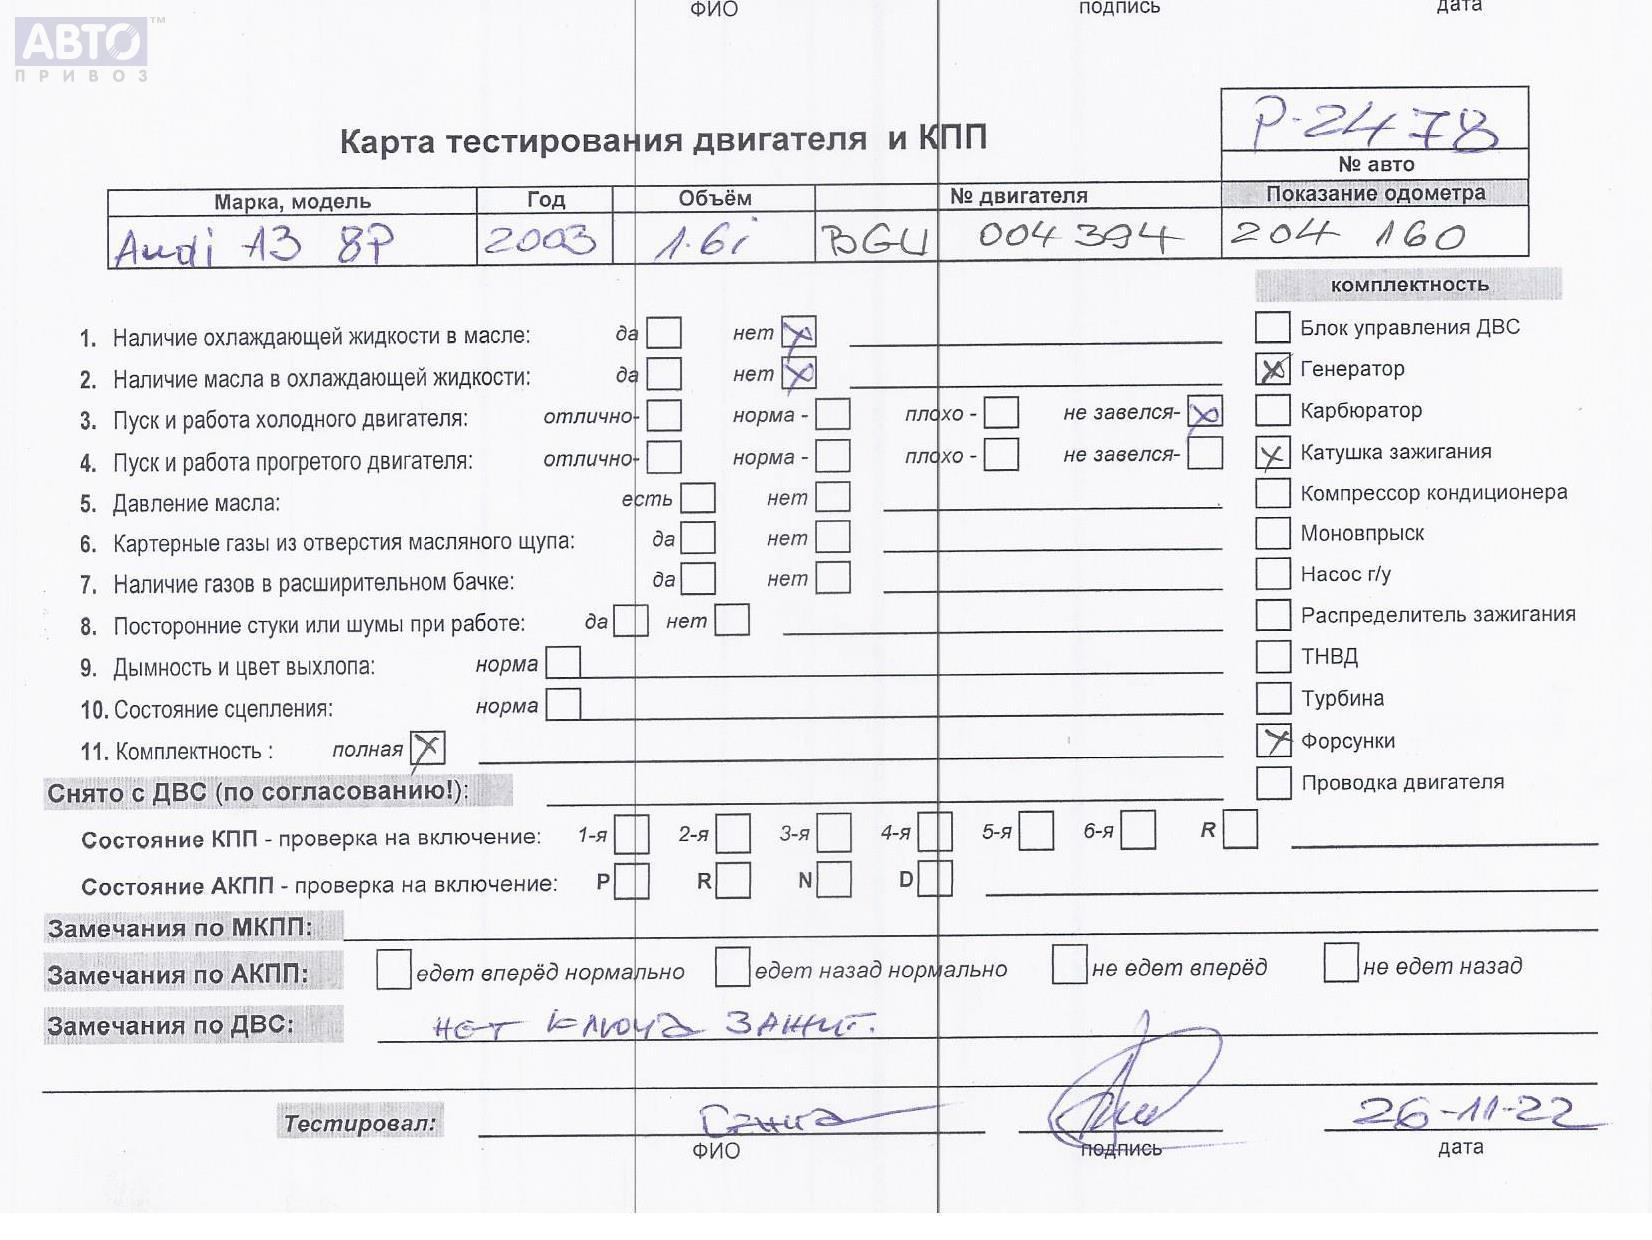 ФИО подпись дата
АВТО ™
ПРИВОЗ
Р-2478
Карта тестирования двигателя и КПП
№ авто
Марка, модель Год Объём № двигателя Показание одометра
Audi A3 8P 2003 1.6i BGU 004394 204 160
комплектность
1. Наличие охлаждающей жидкости в масле: да нет x Блок управления ДВС
2. Наличие масла в охлаждающей жидкости: да нет x x Генератор
3. Пуск и работа холодного двигателя: отлично- норма - плохо - не завелся- x Карбюратор
4. Пуск и работа прогретого двигателя: отлично- норма - плохо - не завелся- x Катушка зажигания
5. Давление масла: есть нет Компрессор кондиционера
6. Картерные газы из отверстия масляного щупа: да нет Моновпрыск
7. Наличие газов в расширительном бачке: да нет Насос г/у
8. Посторонние стуки или шумы при работе: да нет Распределитель зажигания
9. Дымность и цвет выхлопа: норма ТНВД
10. Состояние сцепления: норма Турбина
11. Комплектность : полная x x Форсунки
Снято с ДВС (по согласованию!): Проводка двигателя
Состояние КПП - проверка на включение: 1-я 2-я 3-я 4-я 5-я 6-я R
Состояние АКПП - проверка на включение: P R N D
Замечания по МКПП:
Замечания по АКПП: едет вперёд нормально едет назад нормально не едет вперёд не едет назад
Замечания по ДВС: нет ключа зажиг.
Тестировал: 26-11-22
ФИО подпись дата